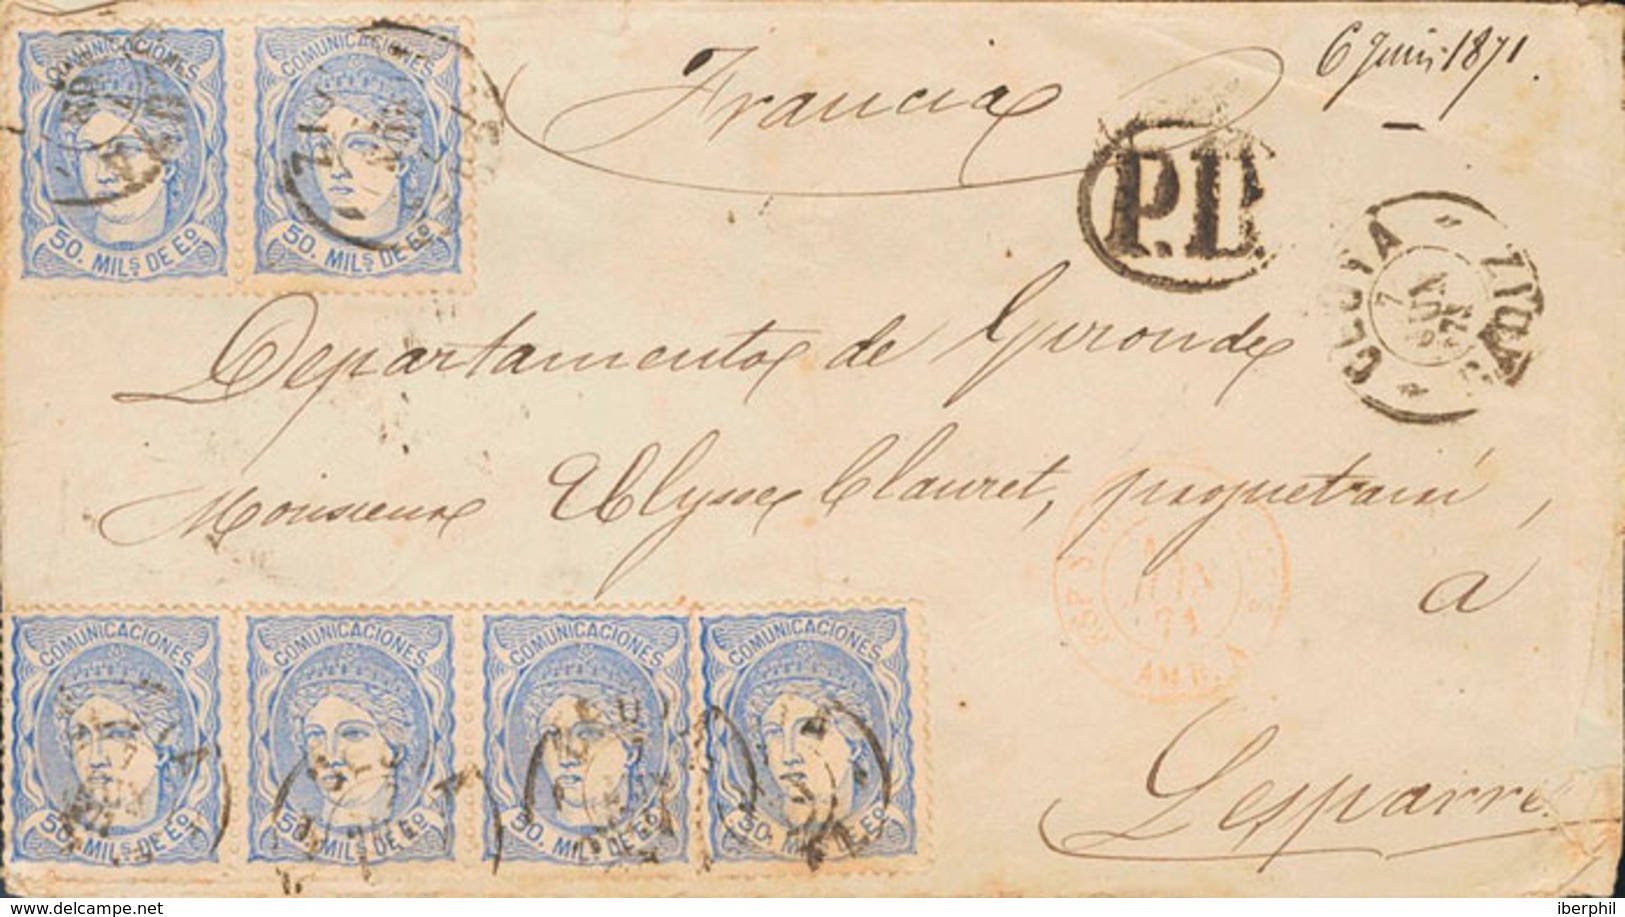 COMUNICACIONES
50. MILs DE Eo
COMUNICACIONES
50. MILs DE Eo
Francia
6 Juin 1871.
P.D.
CEUTA
7 JUN 71
CADIZ
Departamento de Gironde
Monsieur Ulysse Clauret, propietraire,
a
Lesparre
COMUNICACIONES
50. MILs DE Eo
COMUNICACIONES
50. MILs DE Eo
COMUNICACIONES
50. MILs DE Eo
COMUNICACIONES
50. MILs DE Eo
JUIN
71
AMB. A
iberphil